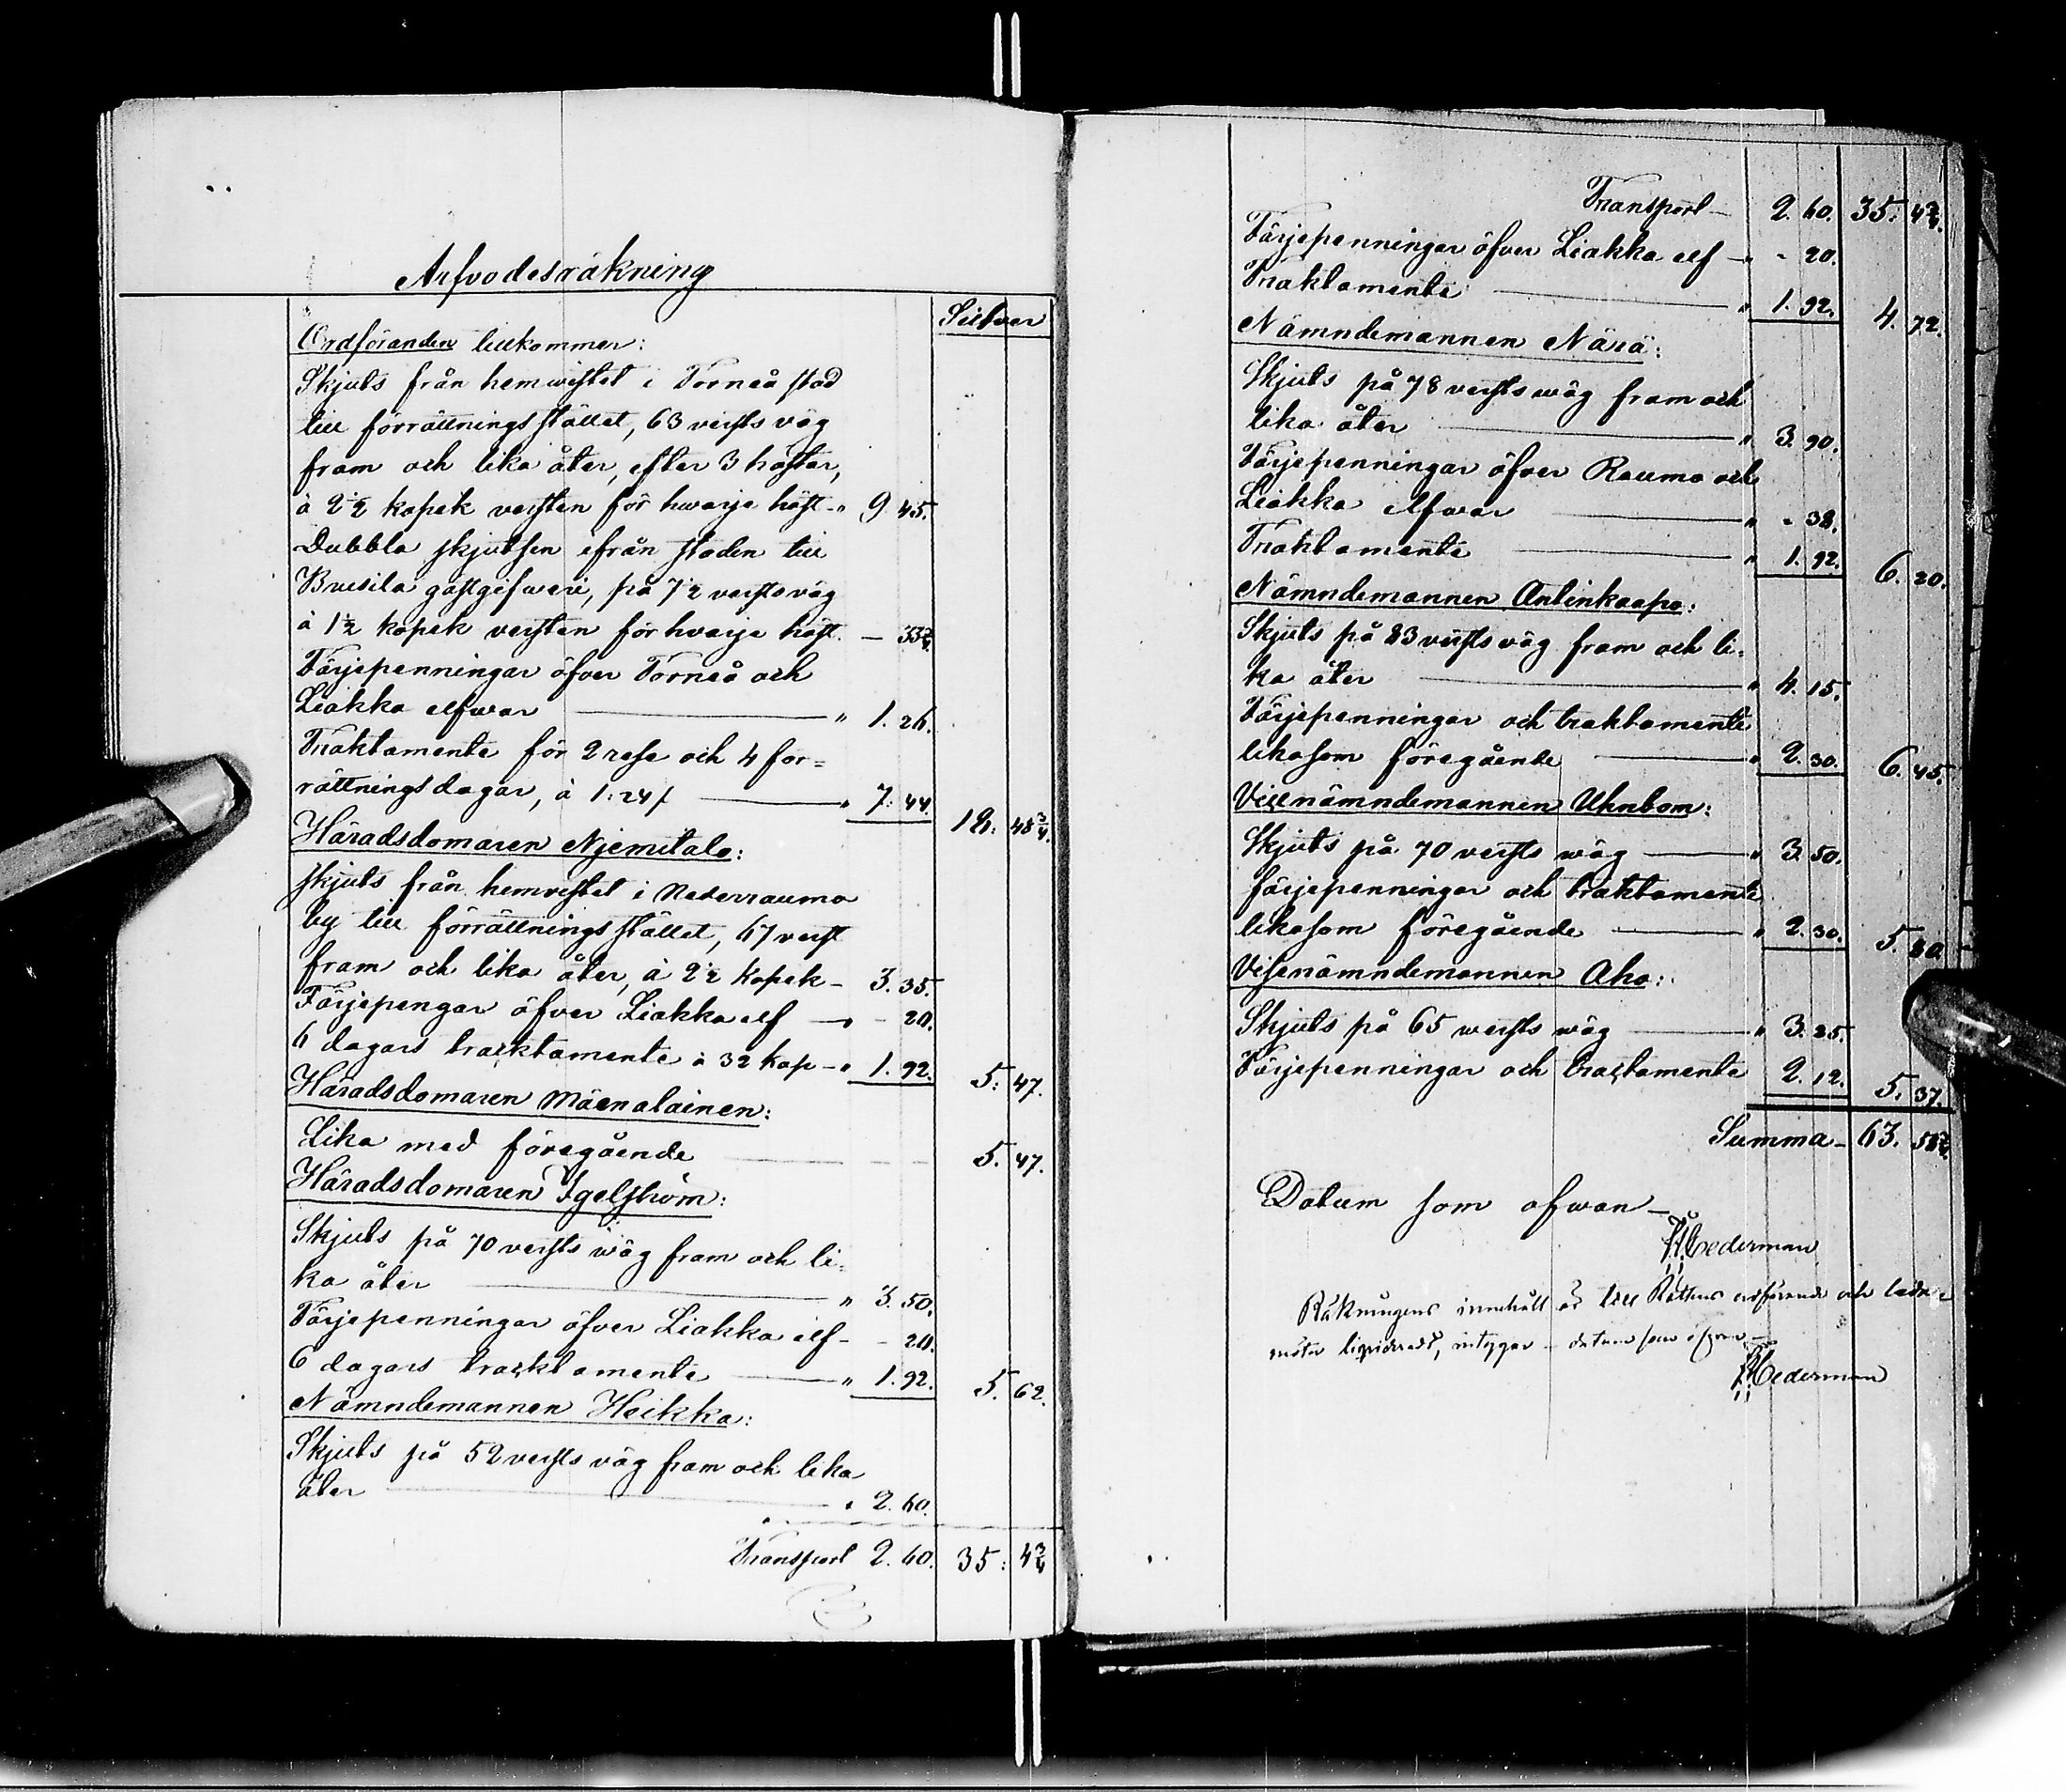 Arfvodesräkning
Silfver
Ordföranden tillkommer:
Skjuts från hemwistet i Torneå stad
till förrättningsstället, 63 versts väg
fram och lika åter, efter 3 hästar,
à 2½ kopek versten för hwarje häst -„ 9 45.
Dubbla skjutsen ifrån staden till
gästgifweri, på 7½ versts väg
à 1½ kopek versten för hvarje häst. — 33¾
Färjepenningar öfver Torneå och
Liakka elfwar — „ 1. 26.
Traktamente för 2 rese och 4 för=
rättningsdagar, à 1:24 — „ 7. 44. 18. 48¾.
Häradsdomaren Njemitalo:
skjuts från hemvistet i Nederrauma
by till förrättningsstället, 67 verst
fram och lika åter, à 2½ kopek - 3. 35.
Färjepengar öfver Liakka elf — „ - 20.
6 dagars tracktamente à 32 kop -„ 1. 92. 5: 47.
Häradsdomaren Mäenalainen:
Lika med föregående — 5. 47.
Häradsdomaren Igelström:
Skjuts på 70 versts wäg fram och li-
ka åter — „ 3. 50.
Färjepenningar öfver Liakka elf - - 20.
6 dagars tracktamente — „ 1. 92. 5. 62.
Nämndemannen Heikka:
Skjuts på 52 versts väg fram och lika
åter — „ 2. 60.
Transport 2. 60. 35: 4¾
Transport — 2. 60. 35. 4¾.
Färjepenningar öfver Liakka elf — „ - 20.
Traktamente — „ 1. 92. 4. 72.
Nämndemannen Närä:
Skjuts på 78 versts wäg fram och
lika åter — „ 3. 90.
Färjepenningar öfver Rauma och
Liakka elfwar — „ - 38.
Traktamente — „ 1. 92. 6. 20.
Nämndemannen Anlinkaapo:
Skjuts på 83 versts väg fram och li-
ka åter — „ 4. 15.
Färjepenningar och traktamente
likasom föregående — „ 2. 30. 6. 45.
Vicenämndemannen Uhnbom:
Skjuts på 70 versts wäg — „ 3. 50.
färjepenningar och traktamente
likasom föregående — „ 2. 30. 5. 80
Visenämndemannen Aho:
Skjuts på 65 wersts wäg — „ 3. 25.
Färjepenningar och tractamente 2. 12. 5. 37.
Summa — 63. 58¾.
Datum som ofwan —
Cederman
Räkningens innehåll är till Rättens ordförande och ledne
möter liquideradt, intygar — datum som ofvan —
Cederman